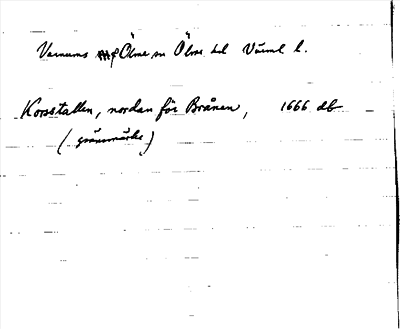 Varnums Ölme sn Ölme hd Värml l.
Korstallen, nordan för Brånen, 1666 db
(gränmärke)